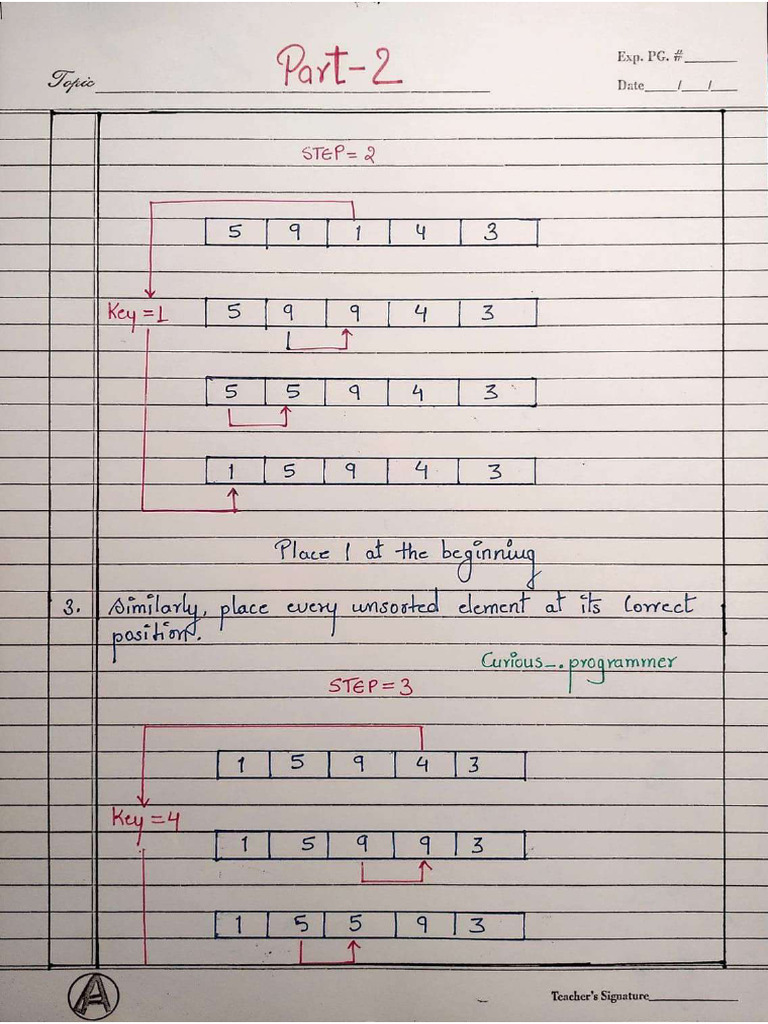 Part-2
Exp. PG. #
Topic
Date / /
STEP=2
5 9 1 4 3
Key=1 5 9 9 4 3
5 5 9 4 3
1 5 9 4 3
Place 1 at the beginning
3. Similarly, place every unsorted element at its correct
position.
Curious_.programmer
STEP=3
1 5 9 4 3
Key=4
1 5 9 9 3
1 5 5 9 3
A
Teacher's Signature